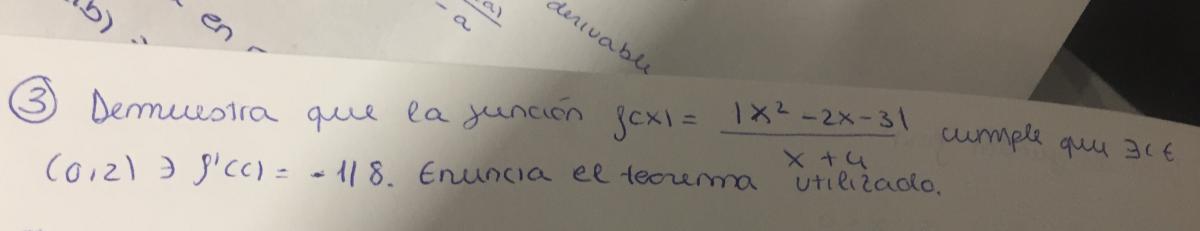 b)
en
a)
- a
derivable
③ Demuestra que la función f(x) = |x² - 2x - 3| / x + 4 cumple que ∃ c ∈
(0,2) ∋ f'(c) = -1/8. Enuncia el teorema utilizado.